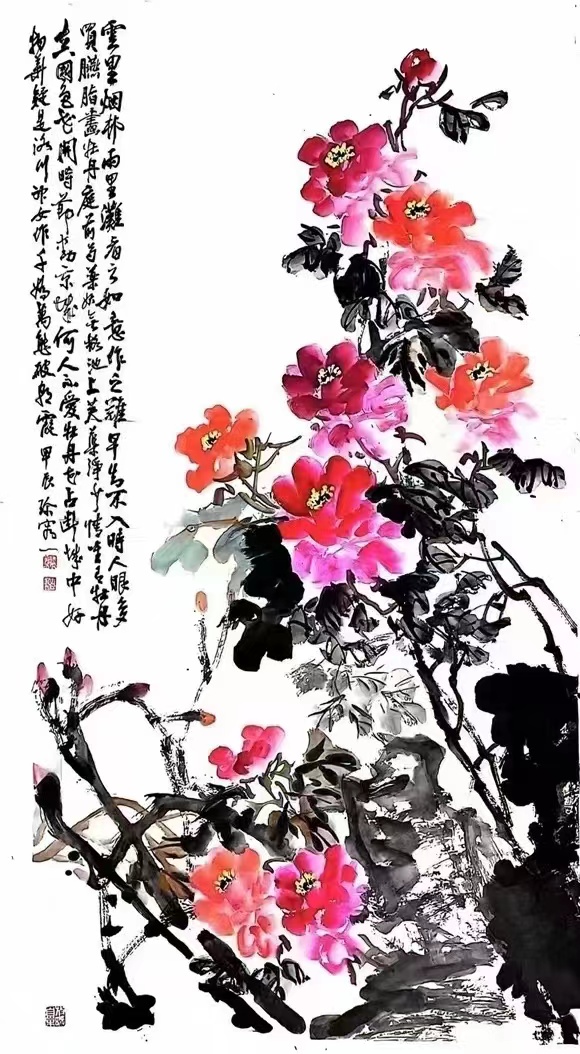 雲里烟邨雨里灘看之如意作之難早知不入時人眼多
買臙脂畫牡丹庭前芍藥妖無格池上芙蕖淨少情唯有牡丹
真國色花開時節動京城何人不愛牡丹花占斷城中好
物華疑是洛川神女作千嬌萬態破朝霞甲辰